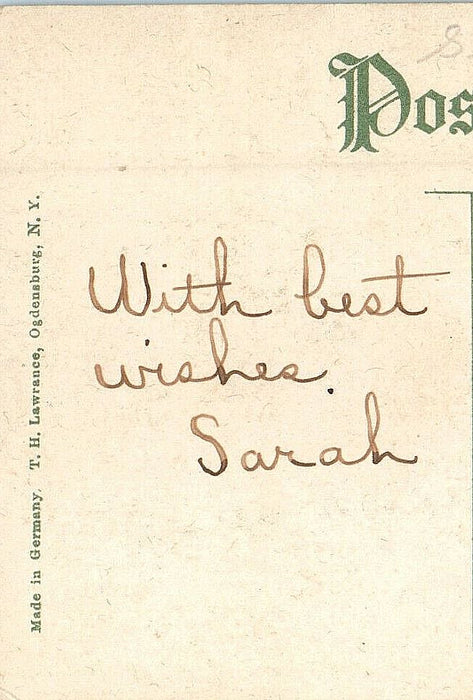 Pos
With best
wishes.
Sarah
Made in Germany. T. H. Lawrance, Ogdensburg, N. Y.